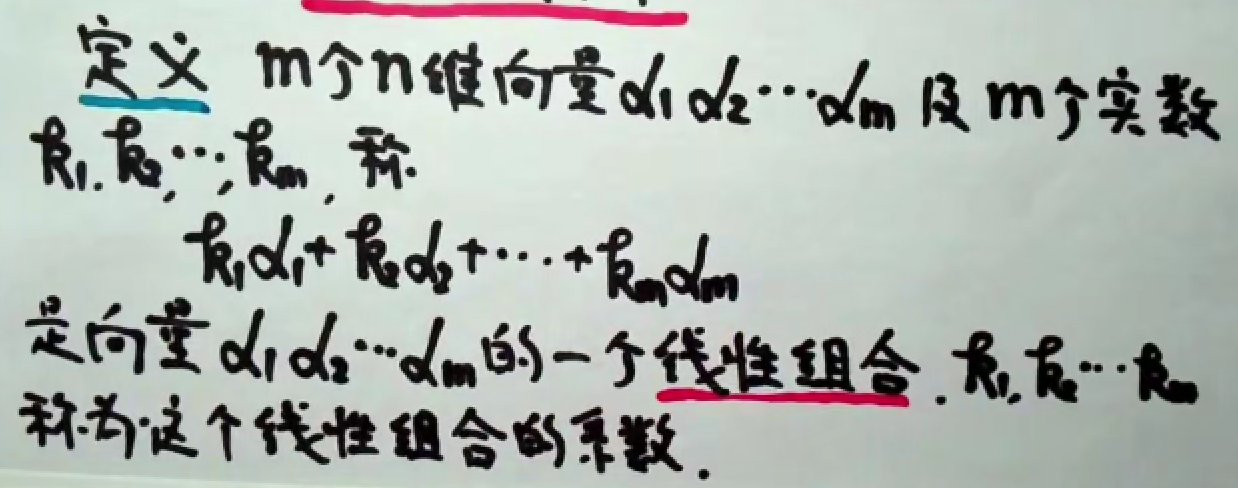 定义 m个n维向量α₁ α₂…αm 及m个实数
k₁, k₂, …, km, 称
k₁α₁+k₂α₂+…+kmαm
是向量α₁ α₂…αm的一个线性组合. k₁, k₂…km
称为这个线性组合的系数.